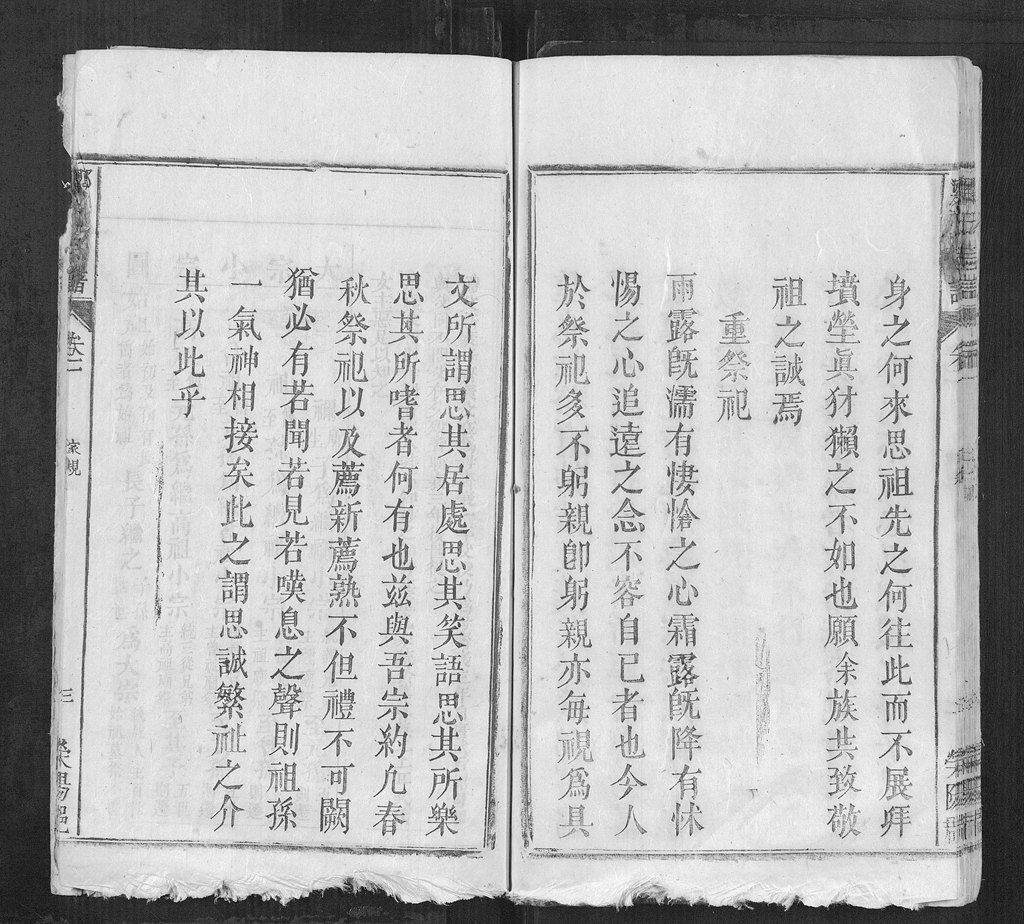 身之何來思祖先之何往此而不展拜
墳塋眞豺獺之不如也願余族共致敬
祖之誠焉
重祭祀
雨露旣濡有悽愴之心霜露旣降有怵
惕之心追遠之念不容自已者也今人
於祭祀多不躬親卽躬親亦每視爲具
文所謂思其居處思其笑語思其所樂
思其所嗜者何有也兹與吾宗約凢春
秋祭祀以及薦新薦熟不但禮不可闕
猶必有若聞若見若嘆息之聲則祖孫
一氣神相接矣此之謂思誠繁祉之介
其以此乎
卷二
家規
三